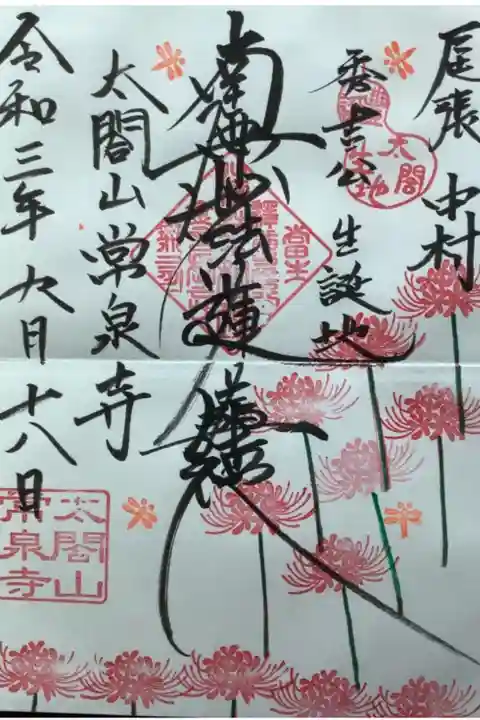 尾張 中村
秀吉公 生誕地
南無妙法蓮華経
太閤山 常泉寺
令和三年 九月 十八日
太閤
生地
太閤山
常泉寺